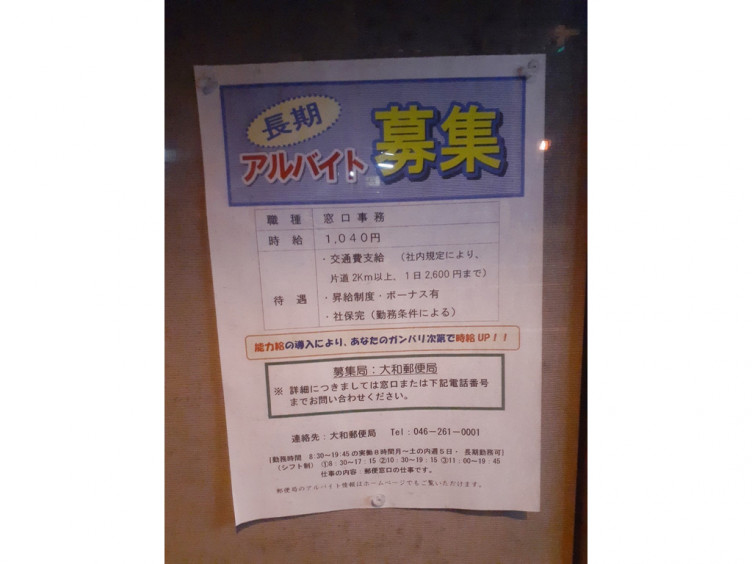 長期
アルバイト 募集
職種 窓口事務
時給 1,040円
待遇 ・交通費支給 (社内規定により、
片道2Km以上、1日2,600円まで)
・昇給制度・ボーナス有
・社保完(勤務条件による)
能力給の導入により、あなたのガンバリ次第で時給UP!!
募集局:大和郵便局
※ 詳細につきましては窓口または下記電話番号
までお問い合わせください。
連絡先:大和郵便局 Tel:046-261-0001
(勤務時間 8:30~19:45の実働8時間月~土の内週5日・長期勤務可)
(シフト制) ①8:30~17:15 ②10:30~19:15 ③11:00~19:45
仕事の内容:郵便窓口の仕事です。
郵便局のアルバイト情報はホームページでもご覧いただけます。